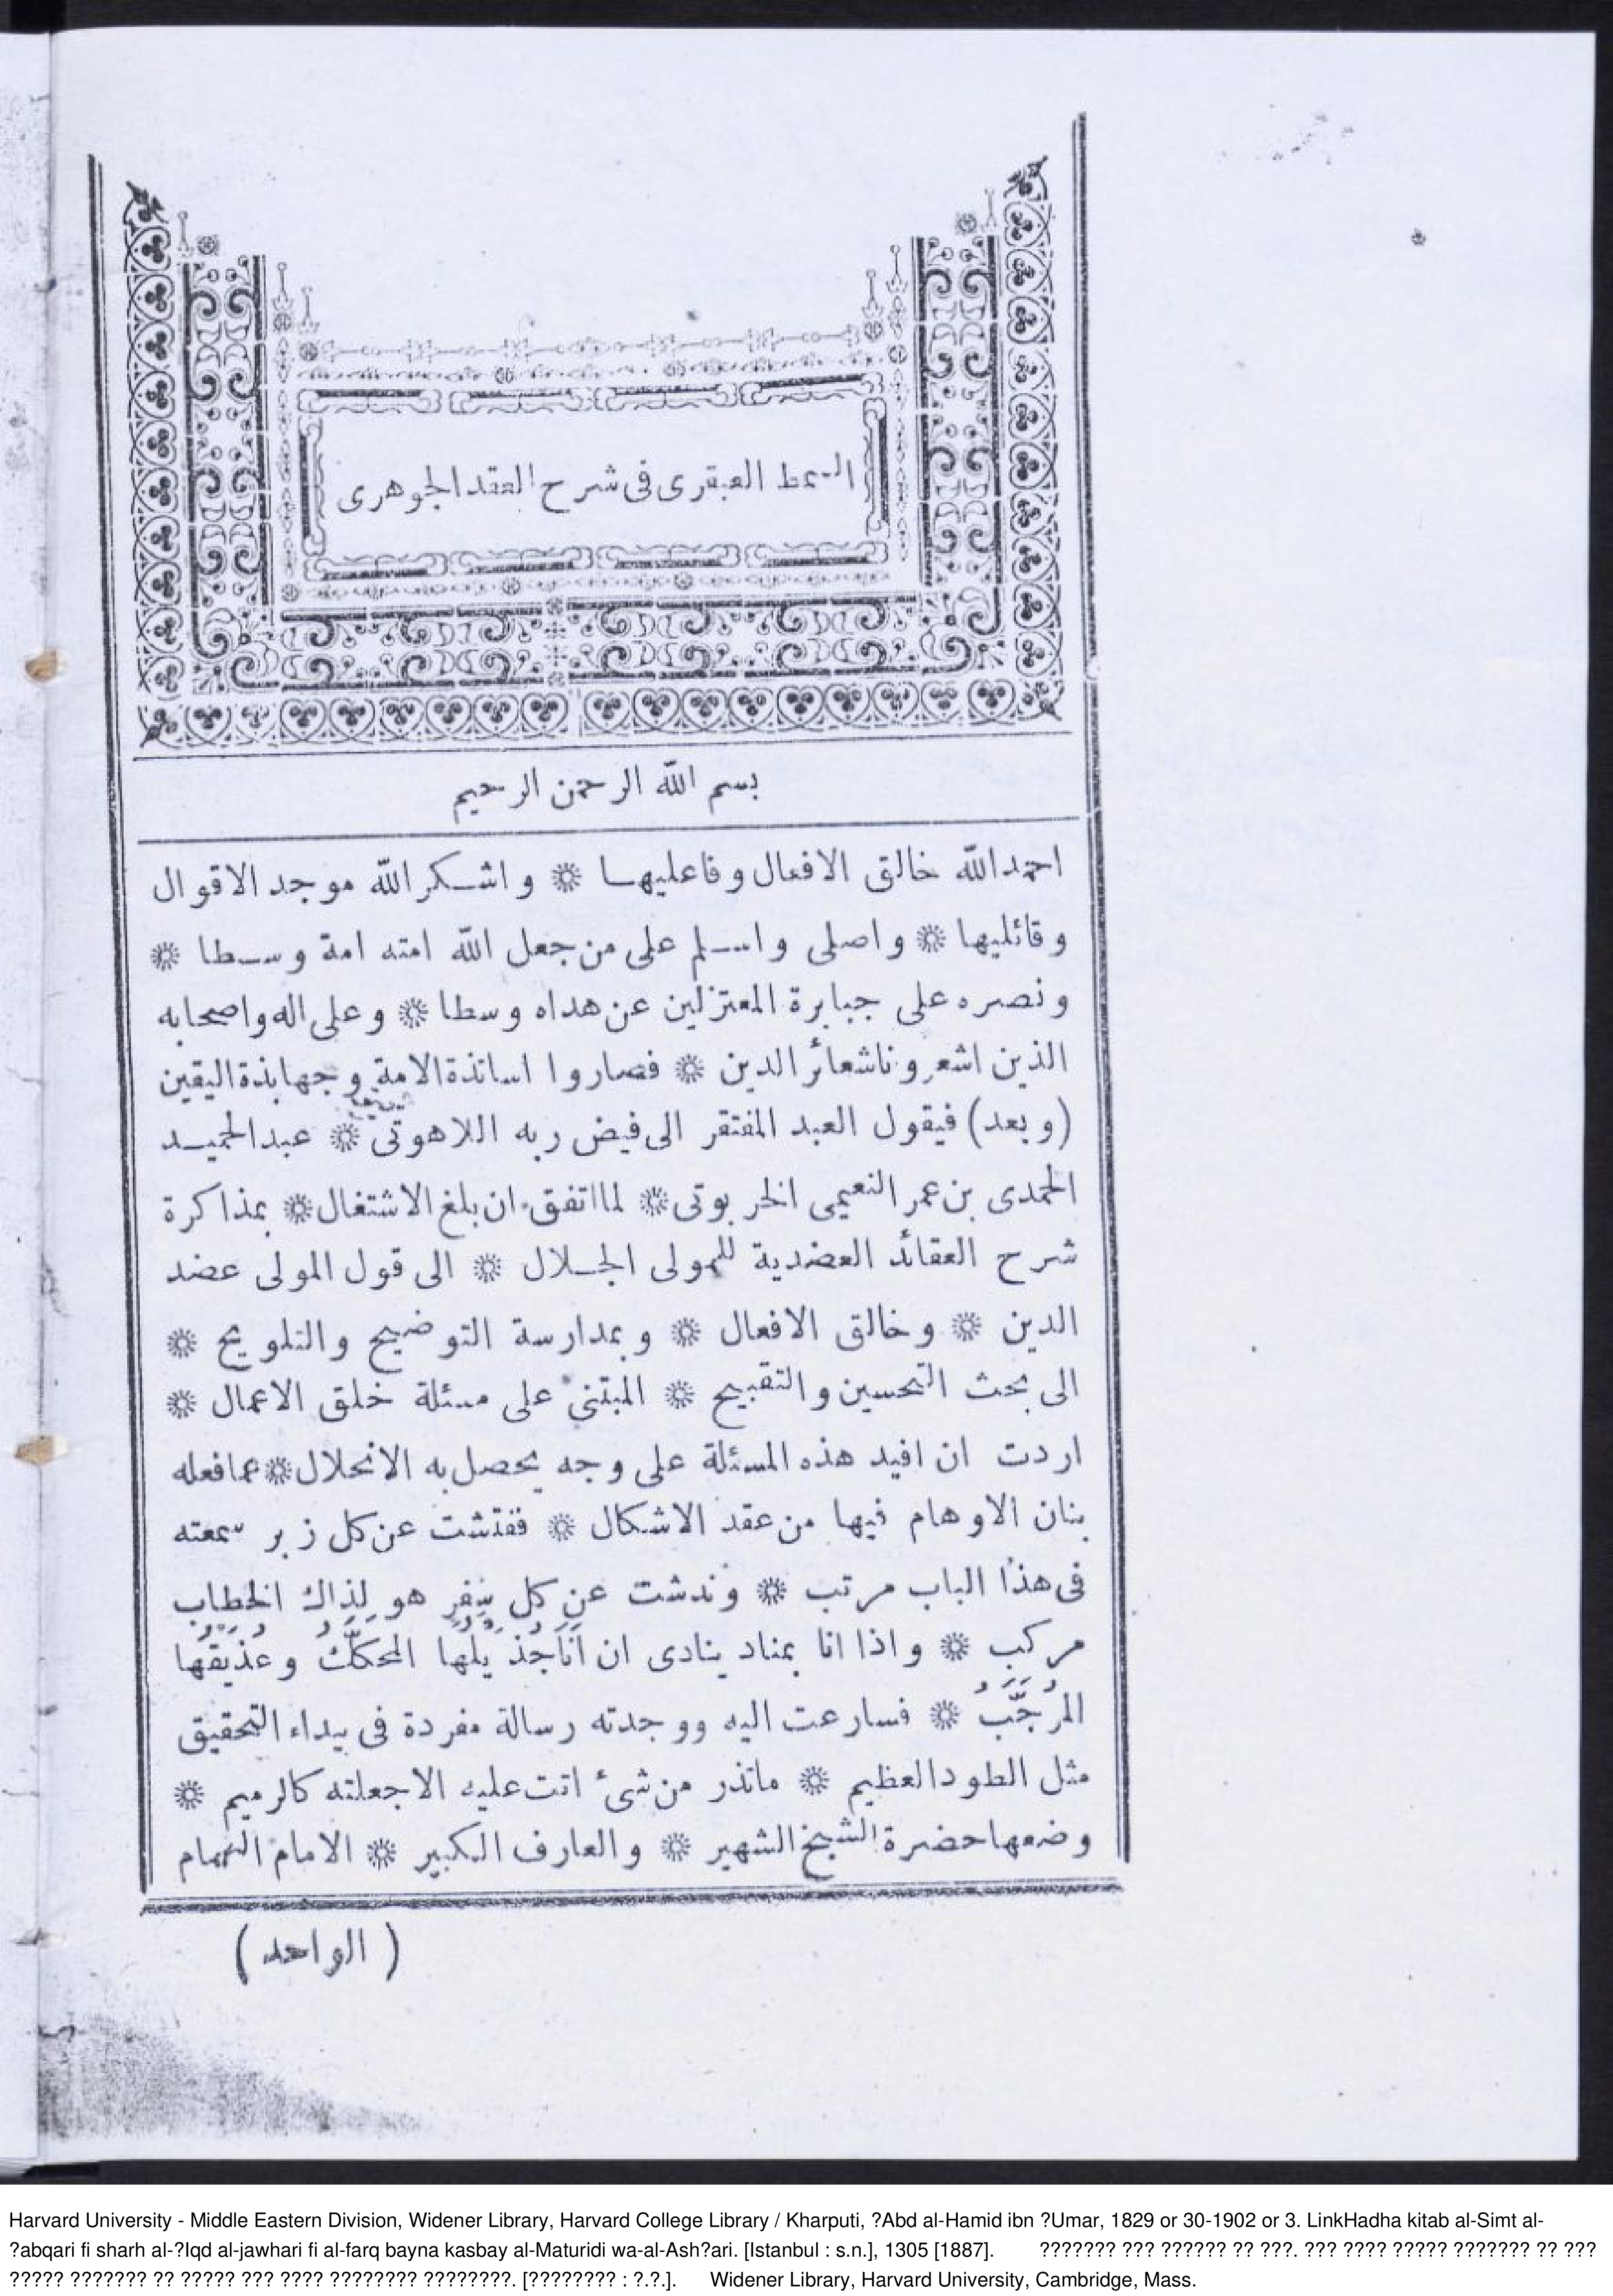 السمط العبقرى فى شرح العقد الجوهرى
بسم الله الرحمن الرحيم
احمد الله خالق الافعال وفاعليهـا ❊ واشـكر الله موجد الاقوال
وقائليها ❊ واصلى واسـلم على من جعل الله امته امة وسـطا ❊
ونصره على جبابرة المعتزلين عن هداه وسطا ❊ وعلى اله واصحابه
الذين اشعرونا شعائر الدين ❊ فصاروا اساتذة الامة وجهابذة اليقين
(وبعد) فيقول العبد المفتقر الى فيض ربه اللاهوتى ❊ عبد الحميـد
الحمدى بن عمر النعيمى الخربوتى ❊ لما اتفق ان بلغ الاشتغال ❊ بمذاكرة
شرح العقائد العضدية للمولى الجـلال ❊ الى قول المولى عضد
الدين ❊ وخالق الافعال ❊ وبمدارسة التوضيح والتلويح ❊
الى بحث التحسين والتقبيح ❊ المبتنى على مسئلة خلق الاعمال ❊
اردت ان افيد هذه المسئلة على وجه يحصل به الانحلال ❊ عما فعله
بنان الاوهام فيها من عقد الاشكال ❊ ففتشت عن كل زبر سمعته
فى هذا الباب مرتب ❊ وندشت عن كل سِفْرٍ هو لذاك الخطاب
مركب ❊ واذا انا بمناد ينادى ان اَنَا جُذَيْلُهَا المُحَكَّكُ وعُذَيْقُهَا
المُرَجَّبُ ❊ فسارعت اليه ووجدته رسالة مفردة فى بيداء التحقيق
مثل الطود العظيم ❊ ماتذر من شئ اتت عليه الا جعلته كالرميم ❊
وضعها حضرة الشيخ الشهير ❊ والعارف الكبير ❊ الامام الهمام
(الواحد)
Harvard University - Middle Eastern Division, Widener Library, Harvard College Library / Kharputi, ?Abd al-Hamid ibn ?Umar, 1829 or 30-1902 or 3. LinkHadha kitab al-Simt al-
?abqari fi sharh al-?Iqd al-jawhari fi al-farq bayna kasbay al-Maturidi wa-al-Ash?ari. [Istanbul : s.n.], 1305 [1887]. ??????? ??? ?????? ?? ???. ??? ???? ????? ??????? ?? ???
????? ??????? ?? ????? ??? ???? ???????? ????????. [???????? : ?.?.]. Widener Library, Harvard University, Cambridge, Mass.